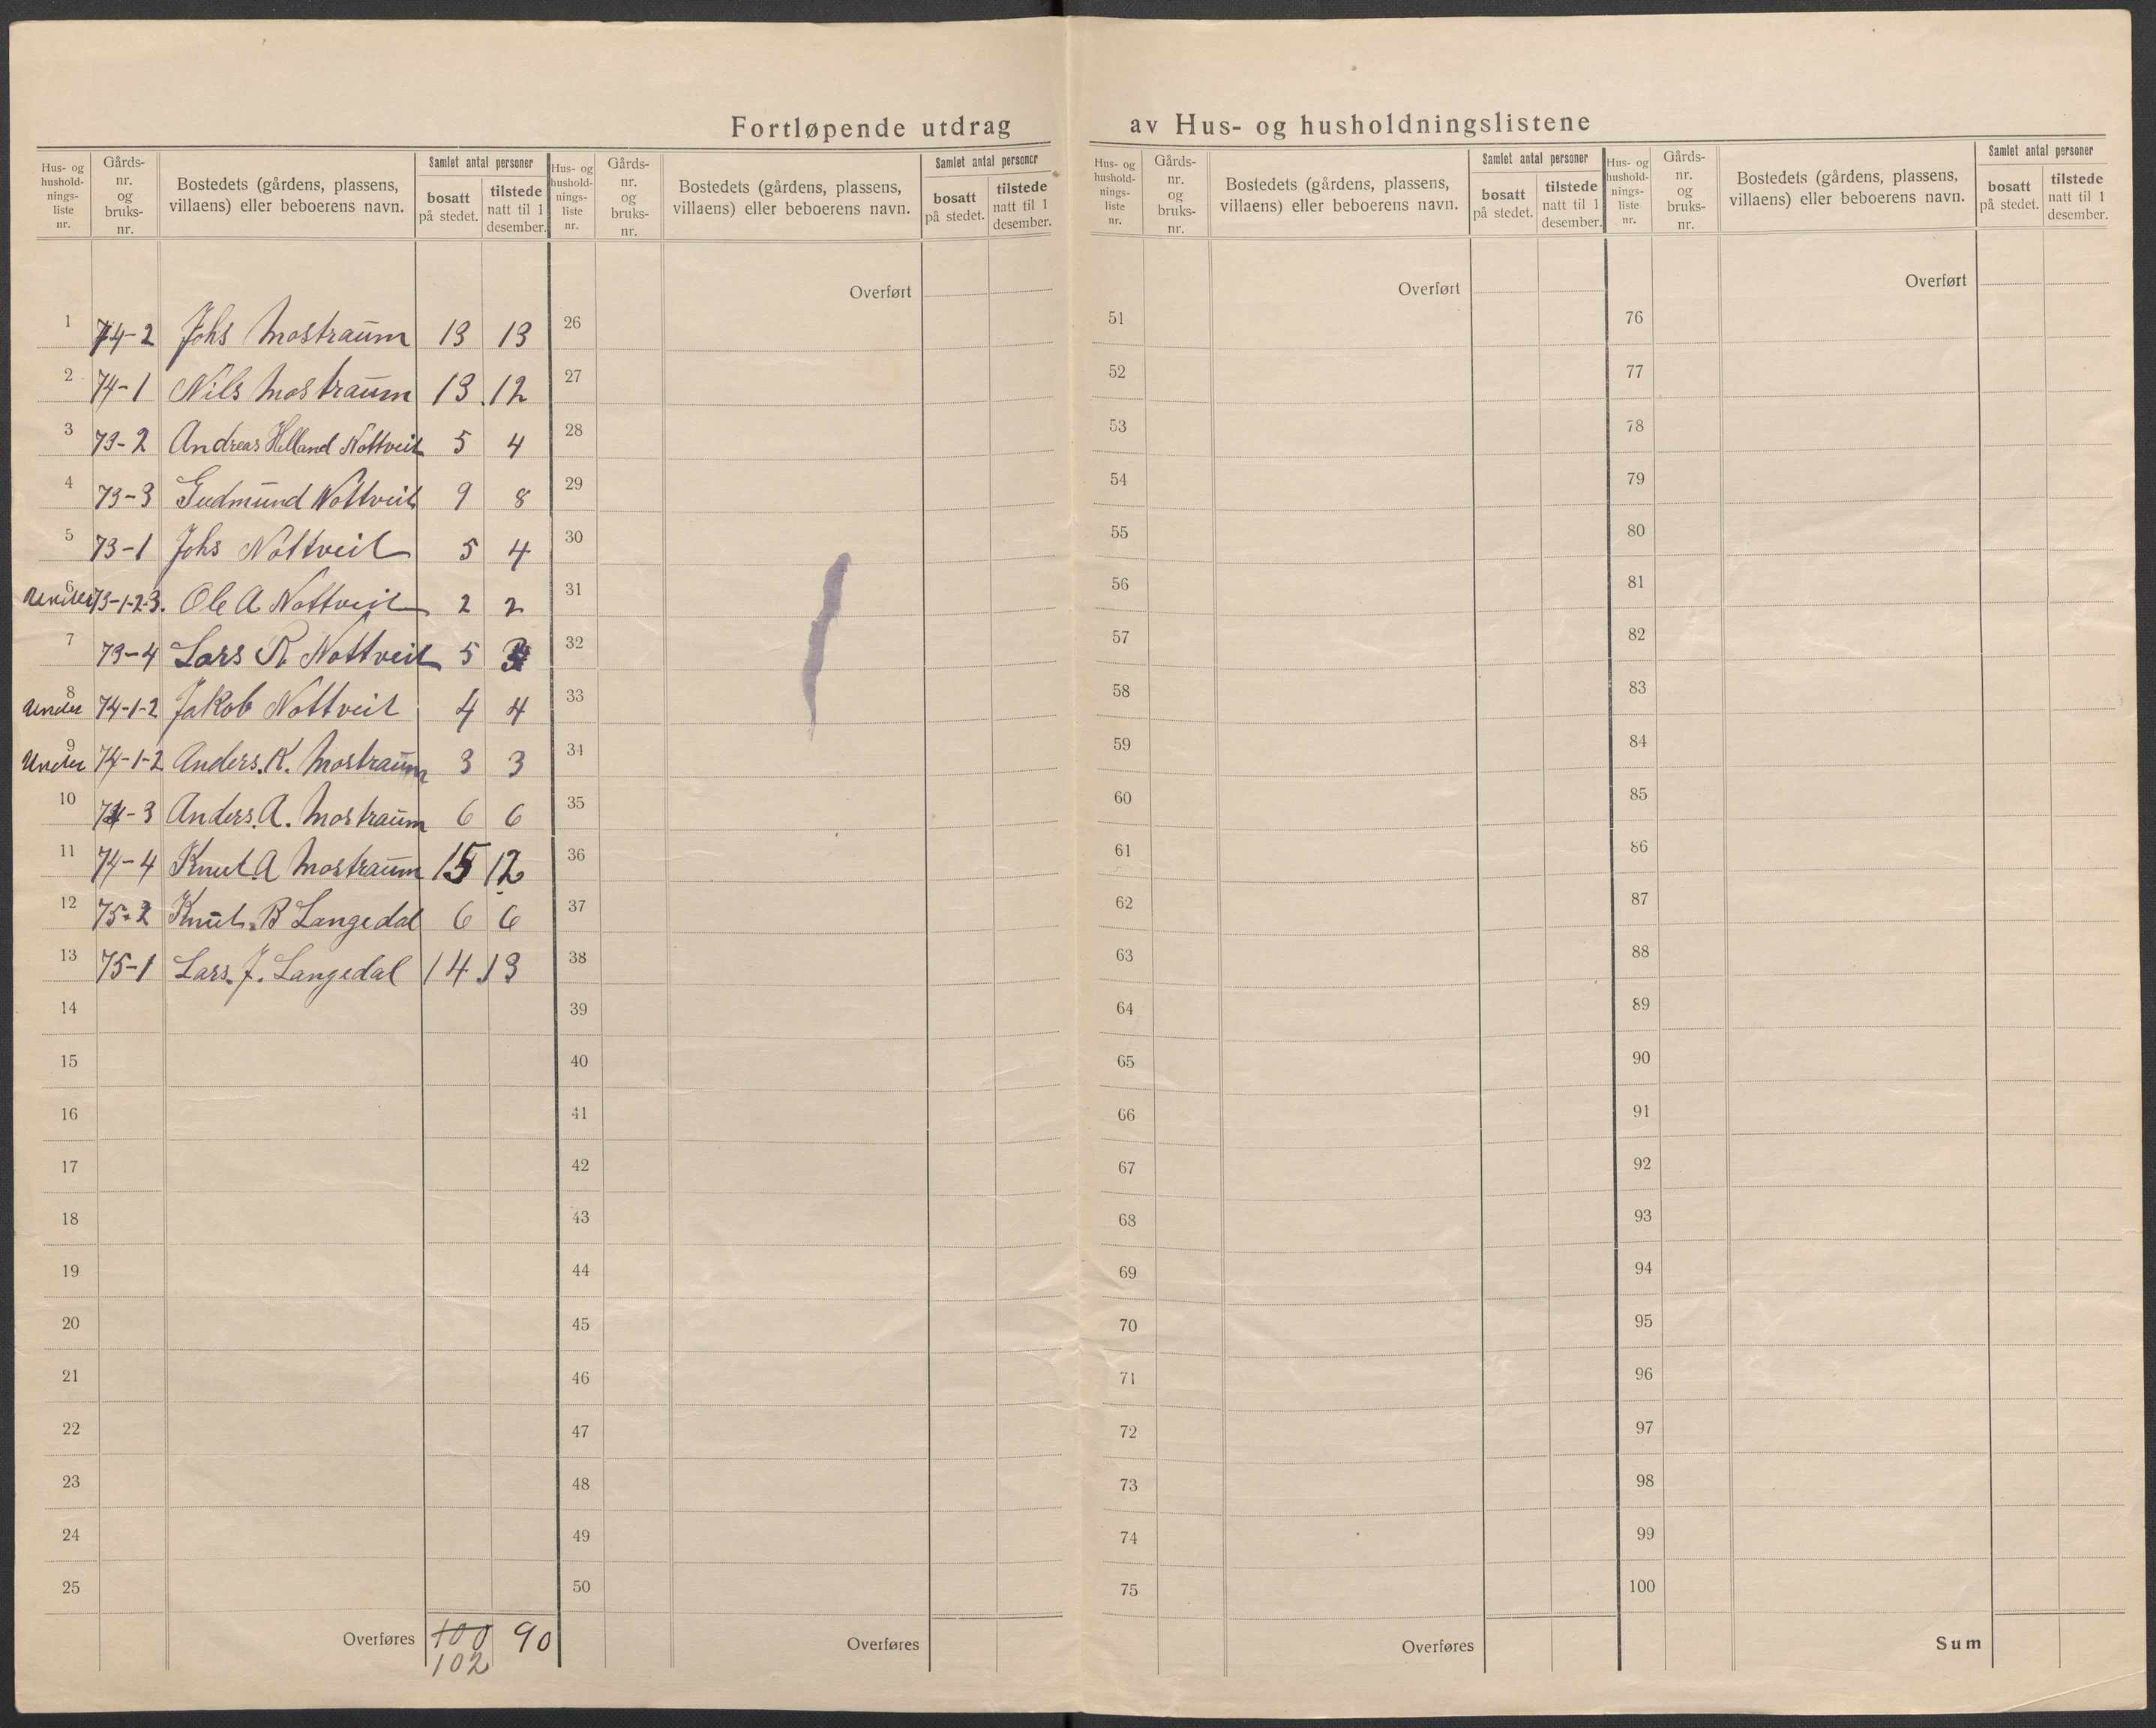 Fortløpende utdrag av Hus- og husholdningslistene
Hus- og hushold-nings-liste nr. Gårds-nr. og bruks-nr. Bostedets (gårdens, plassens, villaens) eller beboerens navn. Samlet antal personer bosatt på stedet. tilstede natt til 1 desember.
1 74-2 Johs Mostraum 13 13
2 74-1 Nils Mostraum 13 12
3 73-2 Andreas Helland Nottveit 5 4
4 73-3 Gudmund Nottveit 9 8
5 73-1 Johs Nottveit 5 4
6 Under 73-1-2-3. Ole A Nottveit 2 2
7 73-4 Lars R Nottveit 5
8 Under 74-1-2 Jakob Nottveit 4 4
9 Under 74-1-2 Anders. K. Mostraum 3 3
10 74-3 Anders. A. Mostraum 6 6
11 74-4 Knut. A Mostraum 15 12
12 75-2 Knut. B Langedal 6 6
13 75-1 Lars. J. Langedal 14 13
14
15
16
17
18
19
20
21
22
23
24
25
Overføres 100 90
102
Hus- og hushold-nings-liste nr. Gårds-nr. og bruks-nr. Bostedets (gårdens, plassens, villaens) eller beboerens navn. Samlet antal personer bosatt på stedet. tilstede natt til 1 desember.
Overført
26
27
28
29
30
31
32
33
34
35
36
37
38
39
40
41
42
43
44
45
46
47
48
49
50
Overføres
Hus- og hushold-nings-liste nr. Gårds-nr. og bruks-nr. Bostedets (gårdens, plassens, villaens) eller beboerens navn. Samlet antal personer bosatt på stedet. tilstede natt til 1 desember.
Overført
51
52
53
54
55
56
57
58
59
60
61
62
63
64
65
66
67
68
69
70
71
72
73
74
75
Overføres
Hus- og hushold-nings-liste nr. Gårds-nr. og bruks-nr. Bostedets (gårdens, plassens, villaens) eller beboerens navn. Samlet antal personer bosatt på stedet. tilstede natt til 1 desember.
Overført
76
77
78
79
80
81
82
83
84
85
86
87
88
89
90
91
92
93
94
95
96
97
98
99
100
Sum